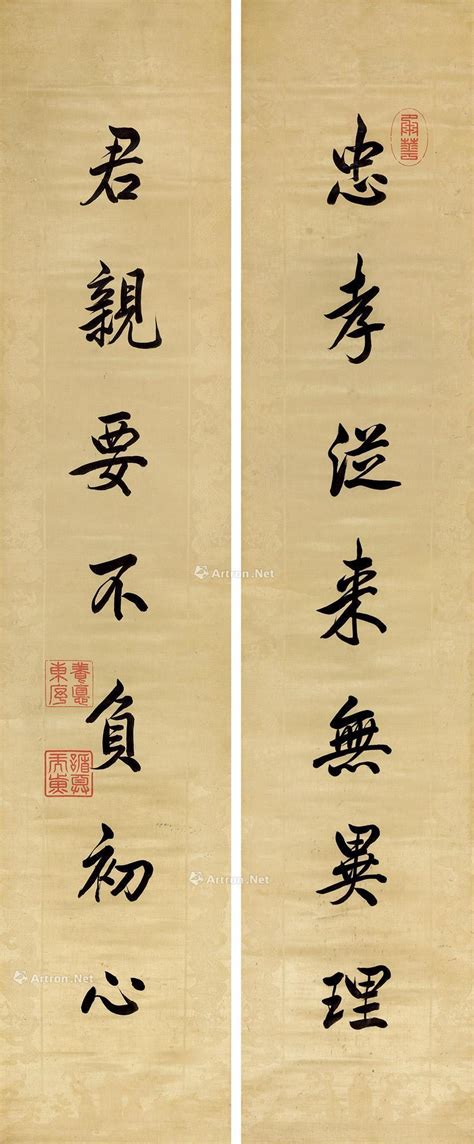 忠孝從来無異理
君親要不負初心
Artron.Net
Artron.Net
Artron.Net